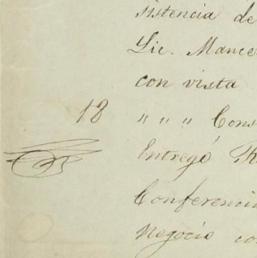 sistencia de
Lic. Mance
con vista
18 " " " Cons
Entregó
Conferenci
Negocio co